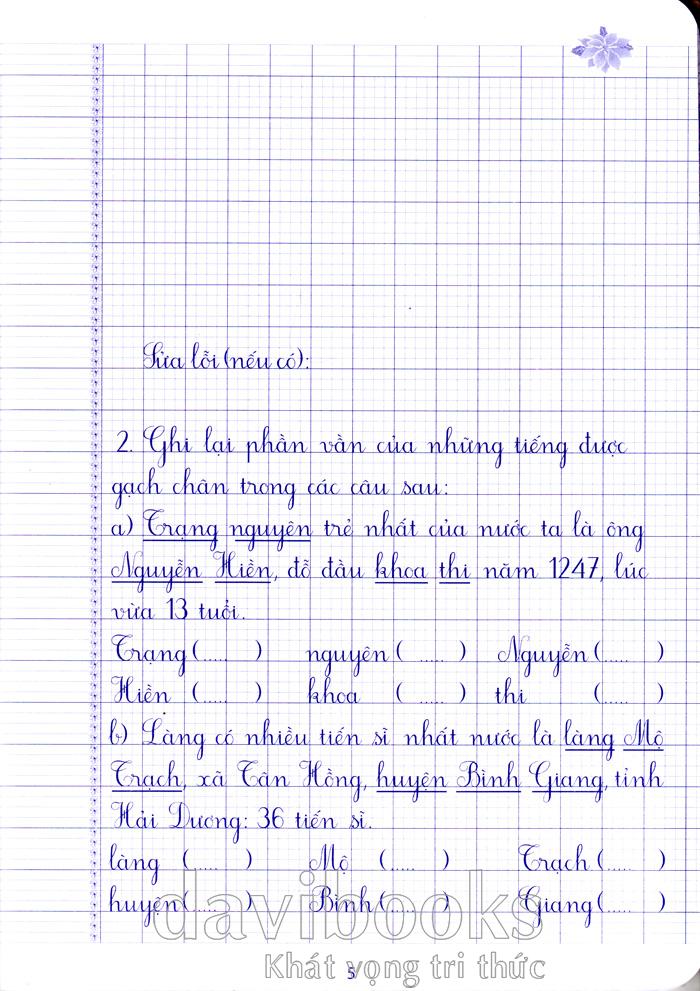 Sửa lỗi (nếu có):
2. Ghi lại phần vần của những tiếng được
gạch chân trong các câu sau:
a) Trạng nguyên trẻ nhất của nước ta là ông
Nguyễn Hiền, đỗ đầu khoa thi năm 1247, lúc
vừa 13 tuổi.
Trạng (..... ) nguyên ( ..... ) Nguyễn (..... )
Hiền (..... ) khoa ( ..... ) thi (..... )
b) Làng có nhiều tiến sĩ nhất nước là làng Mộ
Trạch, xã Tân Hồng, huyện Bình Giang, tỉnh
Hải Dương: 36 tiến sĩ.
làng (..... ) Mộ (..... ) Trạch (..... )
huyện (..... ) Bình (..... ) Giang (..... )
davibooks
Khát vọng tri thức
5